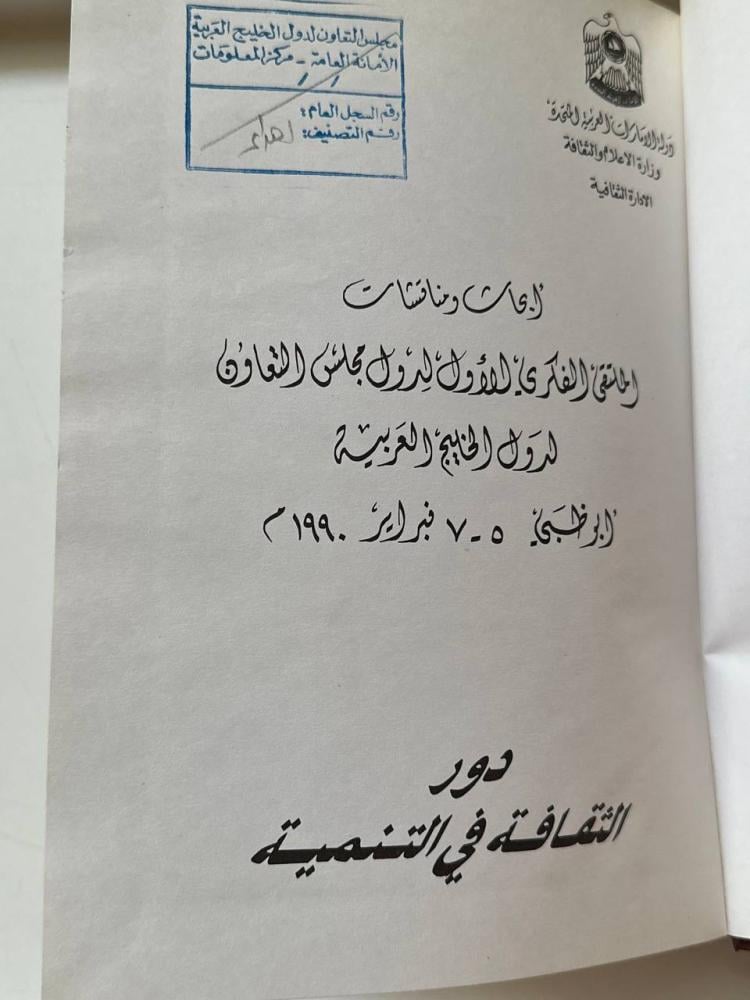 مجلس التعاون لدول الخليج العربية
الأمانة العامة - مركز المعلومات
/ /
رقم السجل العام:
رقم التصنيف: اهداء
دولة الامارات العربية المتحدة
وزارة الاعلام والثقافة
الادارة الثقافية
أبحاث ومناقشات
الملتقى الفكري الأول لدول مجلس التعاون
لدول الخليج العربية
أبوظبي ٥-٧ فبراير ١٩٩٠م
دور
الثقافة في التنمية